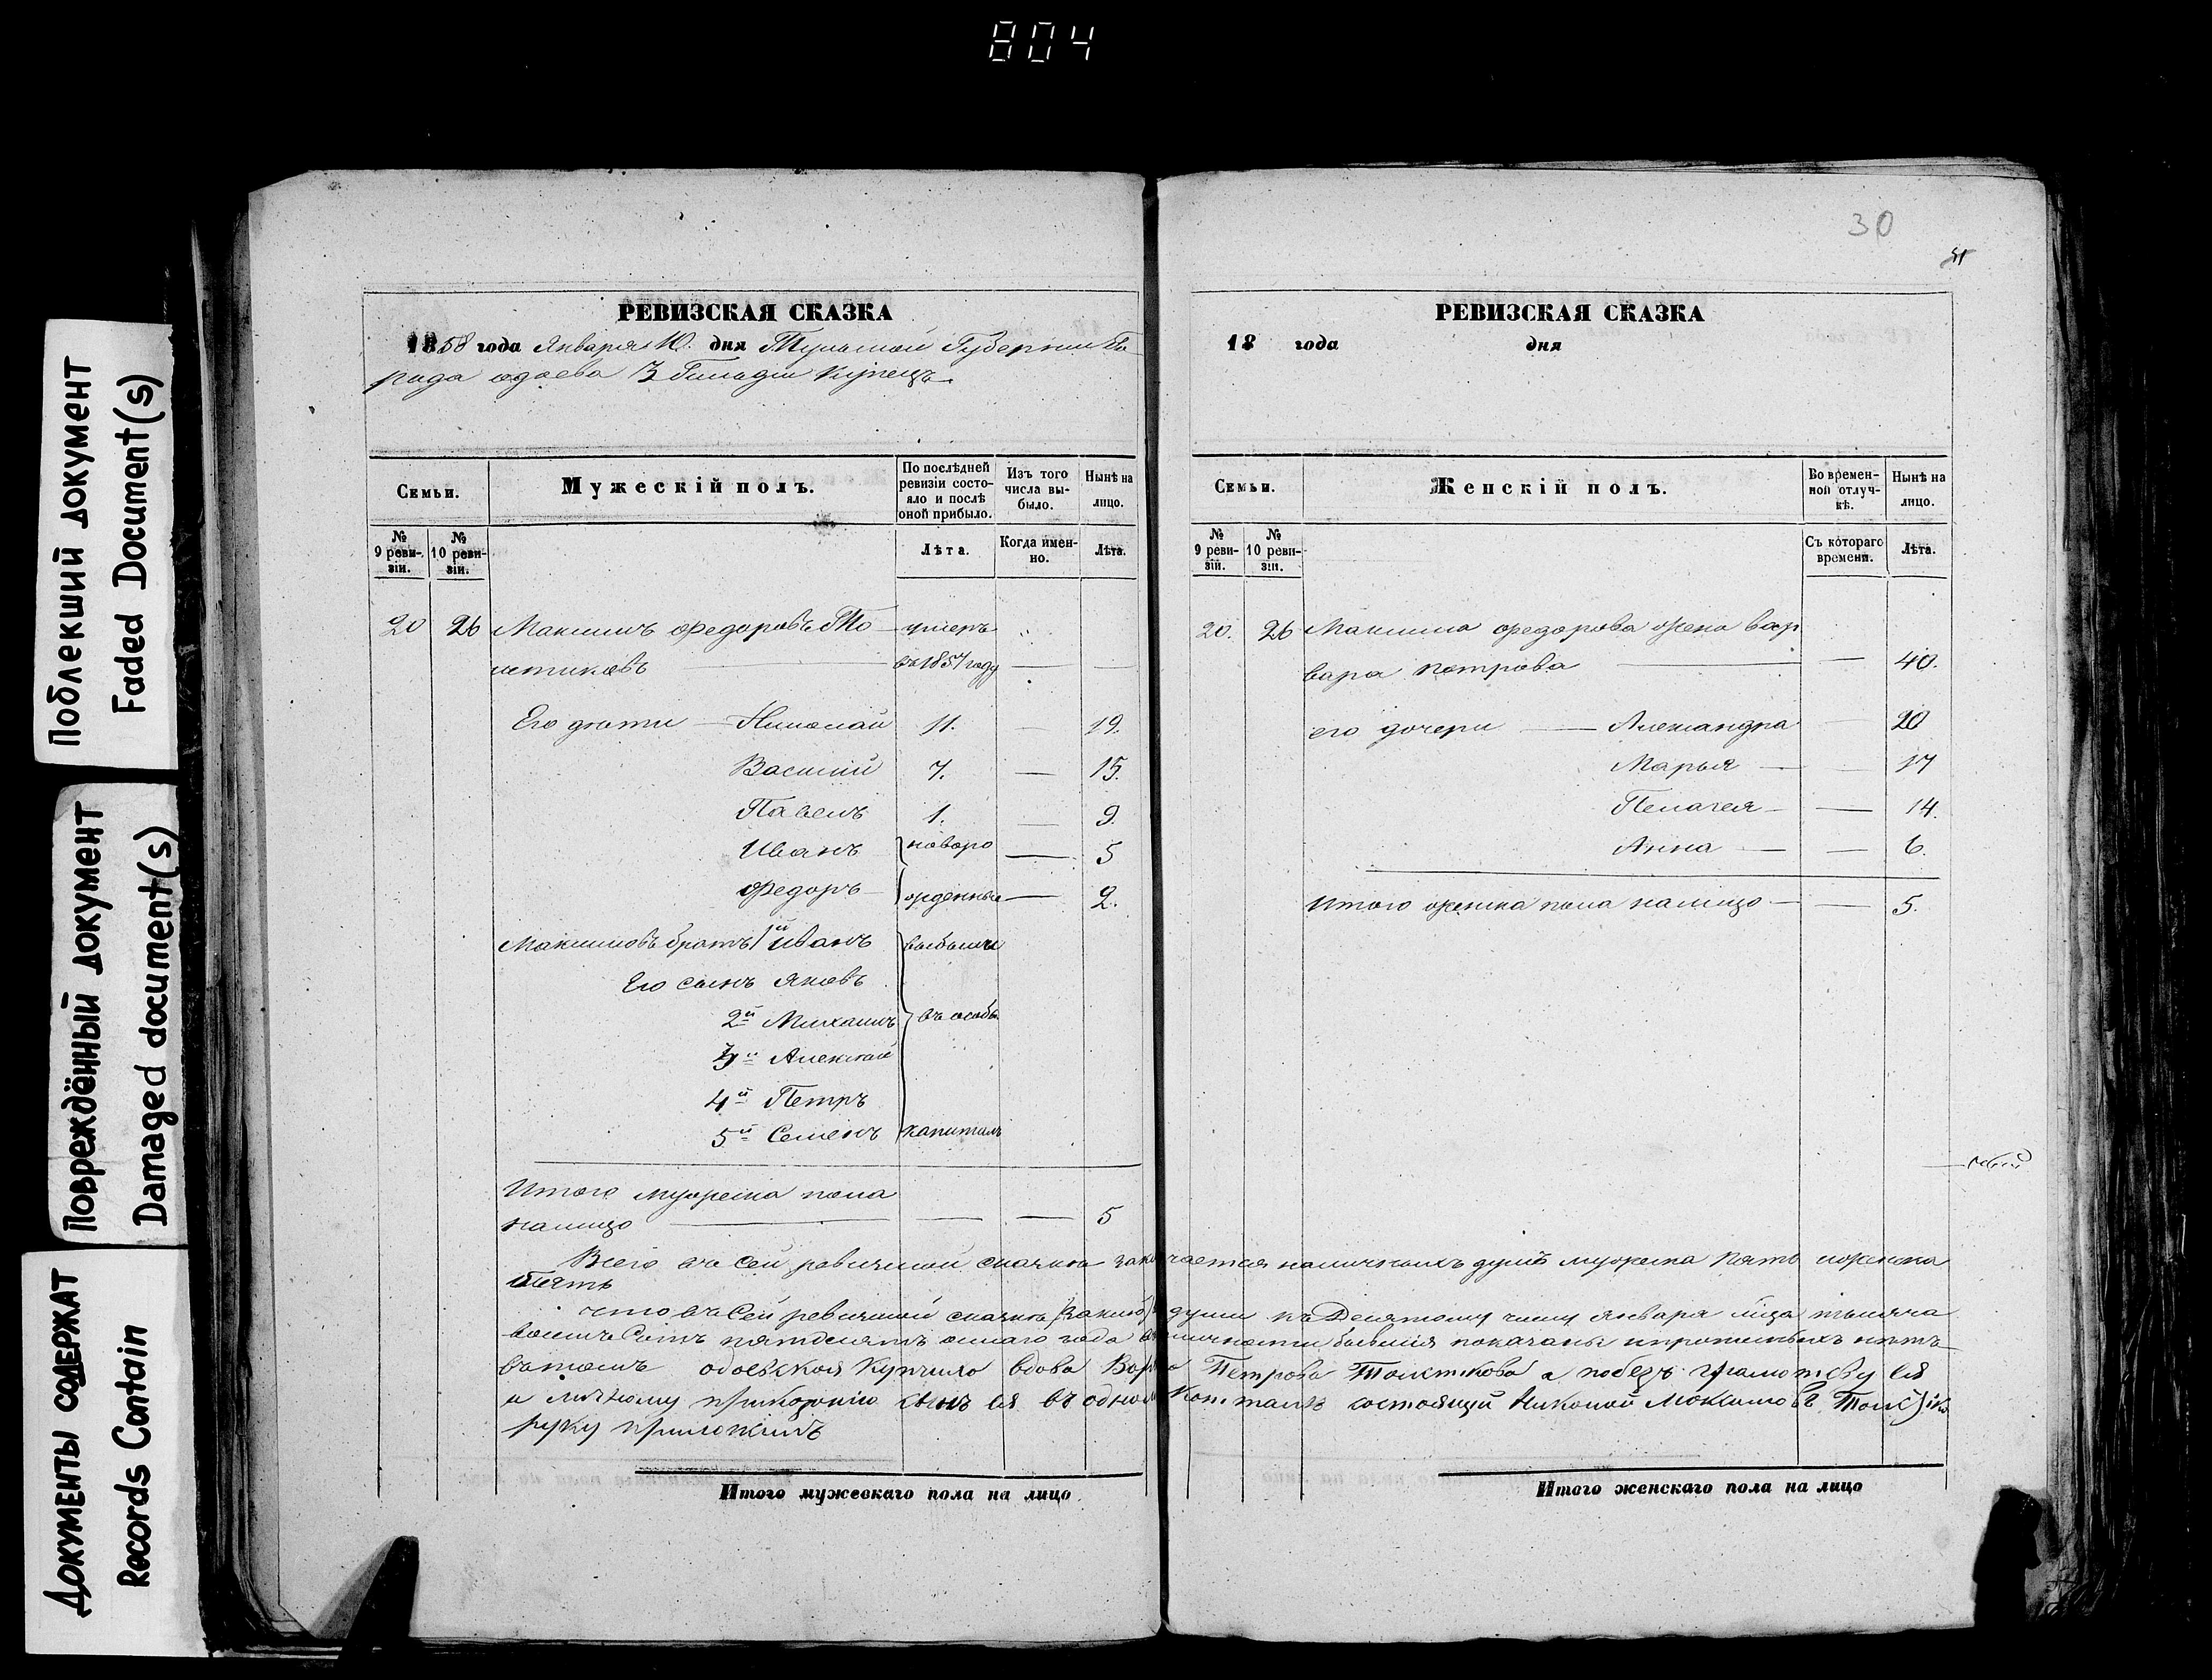 804
Поблекший документ
Faded Document(s)
Повреждённый документ
Damaged document(s)
Документы содержат
Records Contain
РЕВИЗСКАЯ СКАЗКА
1858 года Января 10. дня Тульской Губернии го-
рода одоева 3 Гильдии Купецъ
Семьи.
Мужескій полъ.
По послѣдней ревизіи состояло и послѣ оной прибыло.
Изъ того числа выбыло.
Нынѣ на лицо.
№ 9 ревизіи.
№ 10 ревизіи.
Лѣта.
Когда именно.
Лѣта.
20 26 Максимъ Федоровъ То- умеръ
лстиковъ въ 1857 году — —
Его дѣти — Николай 11. — 19.
Василій 7. — 15.
Павелъ 1. — 9.
Иванъ новоро — 5
Федоръ жденные — 2.
Максимовъ братъ 1й Иванъ выбыли
Его сынъ Яковъ
2й Михаилъ въ особы
3й Алексѣй
4й Петръ
5й Семенъ капиталъ
Итого мужеска пола
налицо — — — 5
30
РЕВИЗСКАЯ СКАЗКА
18 года дня
Семьи.
Женскій полъ.
Во временной отлучкѣ.
Нынѣ на лицо.
№ 9 ревизіи.
№ 10 ревизіи.
Съ котораго времени.
Лѣта.
20. 26 Максима Федорова жена вар
вара петрова — — 40.
его дочери — Александра — 20
Марья — — 17
Пелагея — — 14.
Анна — — 6.
Итого женска пола налицо — — 5.
Всего въ сей ревизской сказкѣ заключается наличныхъ душъ мужеска пять женска
пять
что въ Сей ревизской сказкѣ души къ Десятому числу Января мѣца тысяча
восемъ Сотъ пятдесятъ осмаго года въ наличности бывшія показаны и прописныхъ нѣтъ
въ томъ одоевская Купчиха вдова Варвара Петрова Толстикова а по безъ грамотству ея
и личному приказанію сынъ ея въ одномъ Капиталѣ состоящій Николай Максимовъ Толстико
руку приложилъ
Итого мужескаго пола на лицо
Итого женскаго пола на лицо